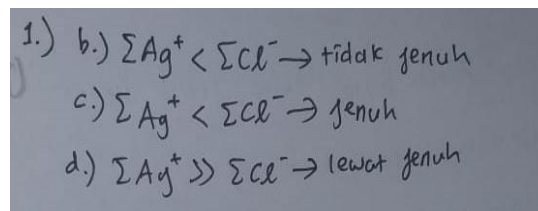 1.) b.) ΣAg⁺ < ΣCl⁻ → tidak jenuh
c.) ΣAg⁺ < ΣCl⁻ → jenuh
d.) ΣAg⁺ >> ΣCl⁻ → lewat jenuh